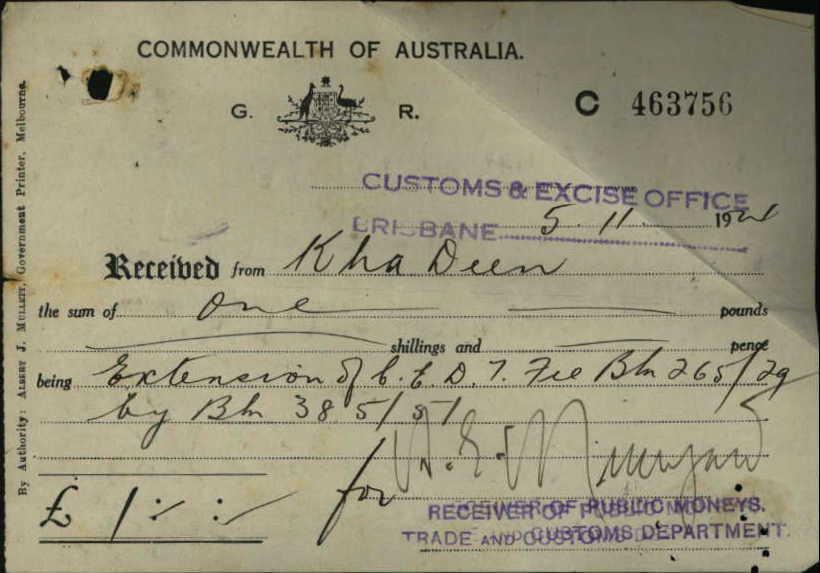 COMMONWEALTH OF AUSTRALIA.
G. R.
C 463756
CUSTOMS & EXCISE OFFICE
BRISBANE 5. 11. 1921
Received from Kha Deen
the sum of one pounds
shillings and pence
being Extension of C. E. D. T. Fee Bln 265/29
by Bln 385/51
for
£ 1 : - : -
RECEIVER OF PUBLIC MONEYS.
TRADE AND CUSTOMS DEPARTMENT.
By Authority: ALBERT J. MULLETT, Government Printer, Melbourne.